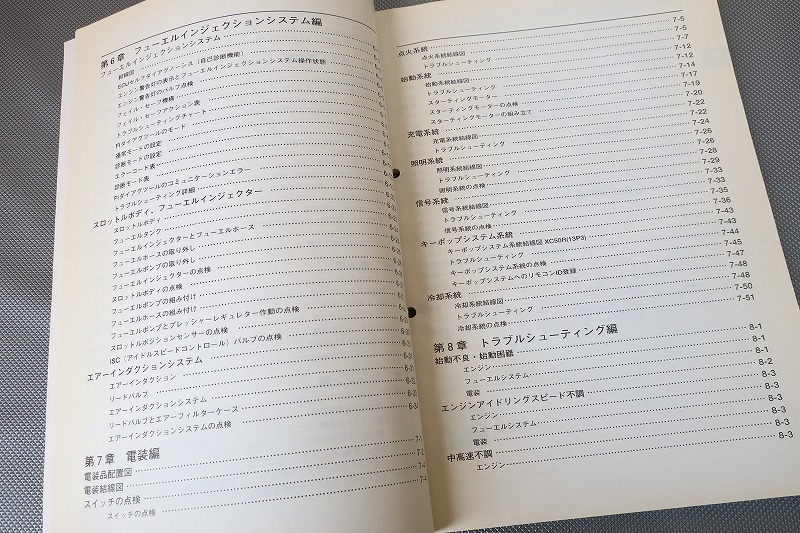 第6章 フューエルインジェクションシステム編
フューエルインジェクションシステム
配線図
ECUセルフダイアグノーシス（自己診断機能）
エンジン警告灯の表示とフューエルインジェクションシステム操作状態
エンジン警告灯のバルブ点検
フェイル・セーフ機構
フェイル・セーフアクション表
トラブルシューティングチャート
FIダイアグツールのモード
通常モードの設定
診断モードの設定
エラーコード表
診断モード表
FIダイアグツールのコミュニケーションエラー
トラブルシューティング詳細
スロットルボディ、フューエルインジェクター
スロットルボディ
フューエルタンク
フューエルインジェクターとフューエルホース
フューエルホースの取り外し
フューエルポンプの取り外し
フューエルインジェクターの点検
スロットルボディの点検
フューエルポンプの組み付け
フューエルホースの組み付け
フューエルポンプとプレッシャーレギュレター作動の点検
スロットルポジションセンサーの点検
ISC（アイドルスピードコントロール）バルブの点検
エアーインダクションシステム
エアーインダクション
リードバルブ
エアーインダクションシステム
リードバルブとエアーフィルターケース
エアーインダクションシステムの点検
第7章 電装編 7-1
電装品配置図 7-2
電装結線図 7-4
スイッチの点検 7-4
スイッチの点検
点火系統 7-5
点火系統結線図 7-5
トラブルシューティング 7-7
始動系統 7-12
始動系統結線図 7-12
トラブルシューティング 7-14
スターティングモーター 7-17
スターティングモーターの点検 7-19
スターティングモーターの組み立て 7-20
充電系統 7-22
充電系統結線図 7-22
トラブルシューティング 7-24
照明系統 7-26
照明系統結線図 7-26
トラブルシューティング 7-28
照明系統の点検 7-29
信号系統 7-33
信号系統結線図 7-33
トラブルシューティング 7-35
信号系統の点検 7-36
キーポップシステム系統 7-43
キーポップシステム系統結線図 XC50R(13P3) 7-43
トラブルシューティング 7-44
キーポップシステム系統の点検 7-45
キーポップシステムへのリモコンID登録 7-47
冷却系統 7-48
冷却系統結線図 7-48
トラブルシューティング 7-50
冷却系統の点検 7-51
第8章 トラブルシューティング編
始動不良・始動困難 8-1
エンジン 8-1
フューエルシステム 8-2
電装 8-3
エンジンアイドリングスピード不調 8-3
エンジン 8-3
フューエルシステム 8-3
電装 8-3
中高速不調 8-3
エンジン 8-3